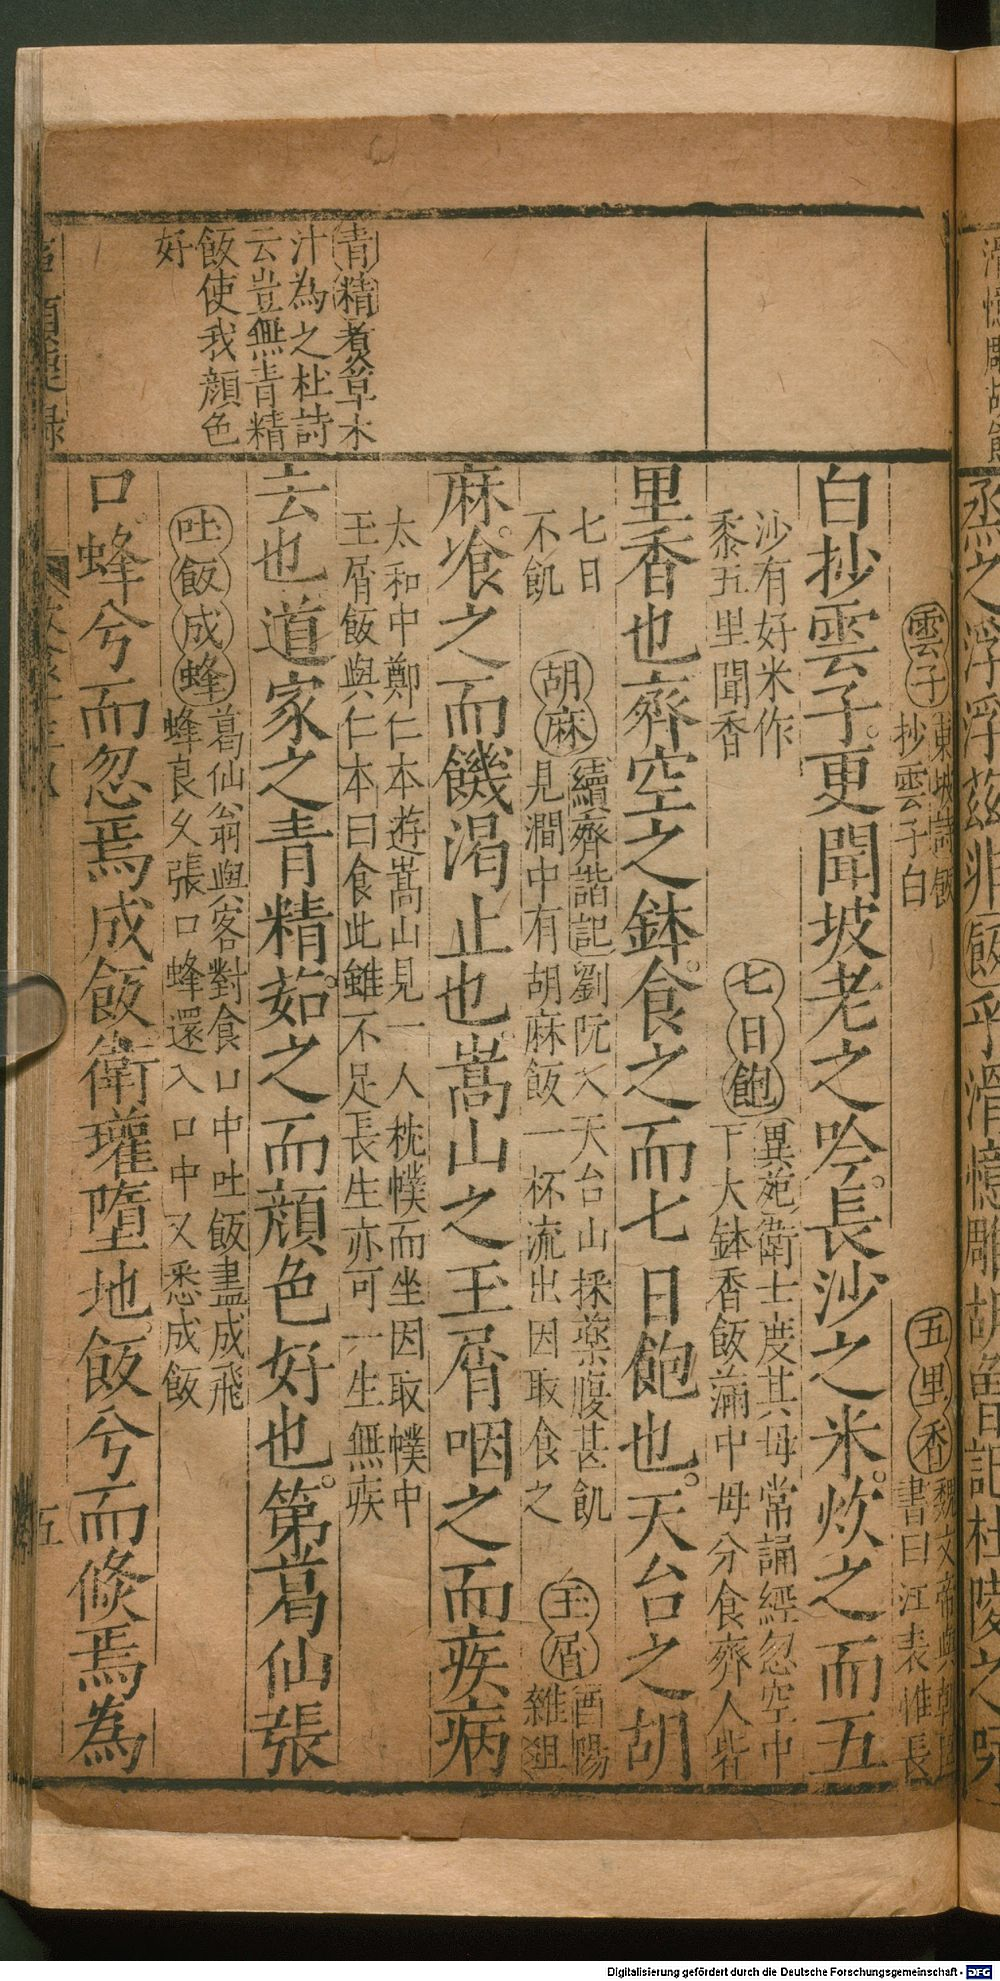 青精煮草木
汁為之杜詩
云豈無青精
飯使我顔色
好
雲子
東坡詩飯
抄雲子白
五里香
魏文帝與朝臣
書曰江表惟長
白抄雲子更聞坡老之吟長沙之米炊之而五
沙有好米作
黍五里聞香
七日飽
異苑衛士度其母常誦經忽空中
下大鉢香飯滿中母分食齊人皆
里香也齊空之鉢食之而七日飽也天台之胡
七日
不飢
胡麻
續齊諧記劉阮入天台山採藥腹甚飢
見澗中有胡麻飯一杯流出因取食之
玉屑
酉陽
雜俎
麻飡之而饑渴止也嵩山之玉屑咽之而疾病
太和中鄭仁本遊嵩山見一人枕幞而坐因取幞中
玉屑飯與仁本曰食此雖不足長生亦可一生無疾
去也道家之青精茹之而顔色好也第葛仙張
吐飯成蜂
葛仙翁與客對食口中吐飯盡成飛
蜂良久張口蜂還入口中又悉成飯
口蜂兮而忽焉成飯衛瓘墮地飯兮而倏焉為
五
Digitalisierung gefördert durch die Deutsche Forschungsgemeinschaft - DFG